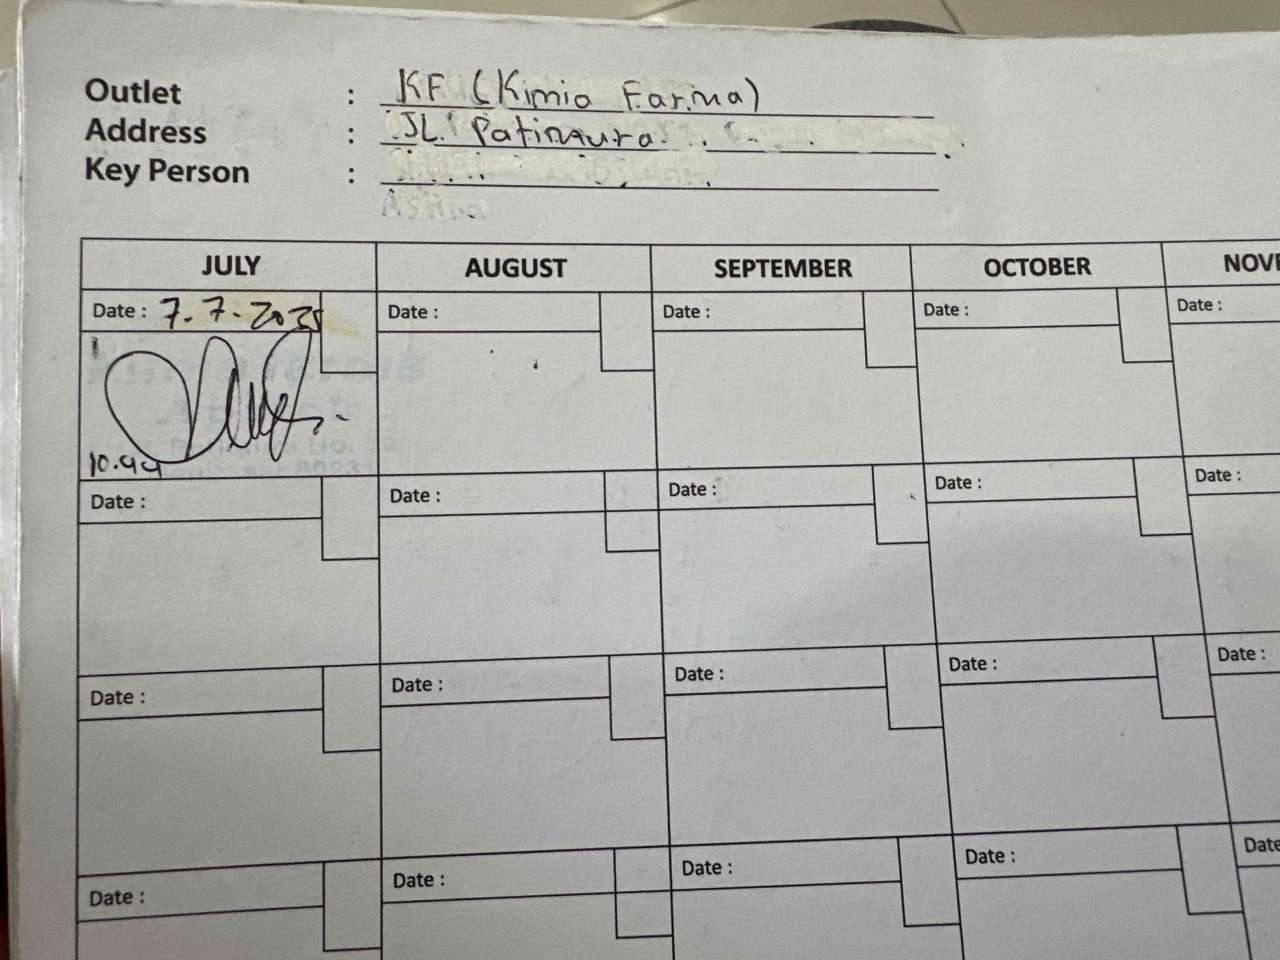 Outlet : KF (Kimia Farma)
Address : JL. Patimura
Key Person :
JULY AUGUST SEPTEMBER OCTOBER NOVE
Date : 7.7.2025 Date : Date : Date : Date :
10.44
Date : Date : Date : Date : Date :
Date : Date : Date : Date : Date :
Date : Date : Date : Date : Date